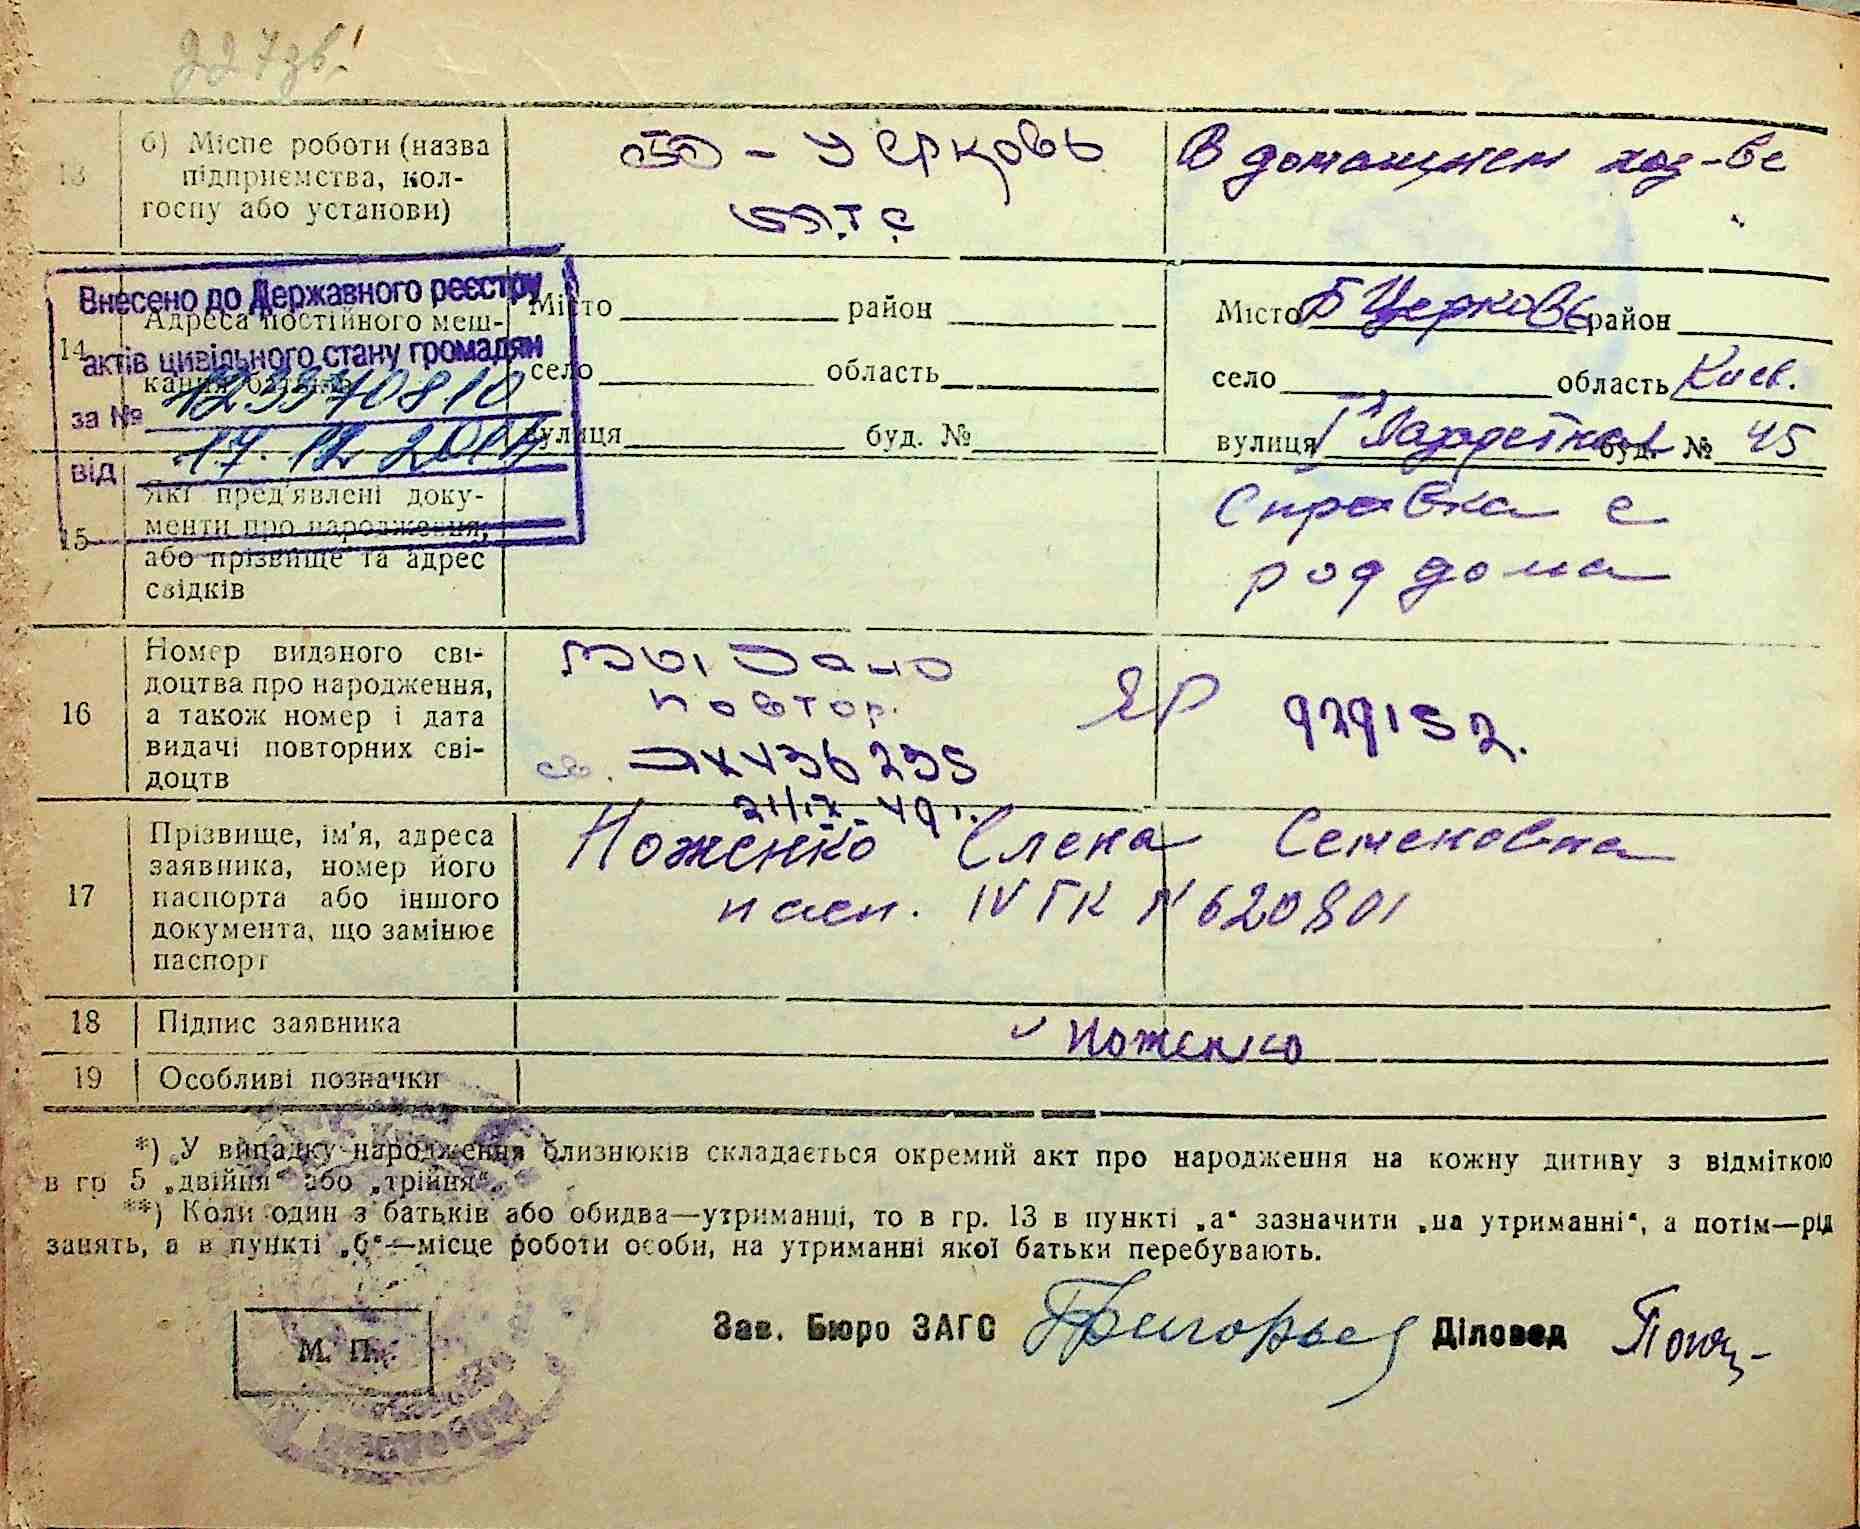 227зв.
13
б) Місце роботи (назва
підприємства, кол-
госпу або установи)
Б - Церковь
МТС
В домашнем хоз-ве
Внесено до Державного реєстру
актів цивільного стану громадян
за №
від 17.12.
14
Адреса постійного меш-
кання батьків
Місто район
село область
вулиця буд. №
Місто Б Церковь район
село область Киев.
вулиця буд. № 45
15
Які пред'явлені доку-
менти про народження,
або прізвище та адрес
свідків
Справка с
роддома
16
Номер виданого сві-
доцтва про народження,
а також номер і дата
видачі повторних сві-
доцтв
Выдано
повтор.
св. 436235
ЯР 929152.
17
Прізвище, ім'я, адреса
заявника, номер його
паспорта або іншого
документа, що замінює
паспорт
Ноженко Елена Семеновна
пасп. IV ГК N 620801
18 Підпис заявника
Ноженко
19 Особливі позначки
*) У випадку народження близнюків складається окремий акт про народження на кожну дитину з відміткою
в гр 5 „двійня“ або „трійня“.
**) Коли один з батьків або обидва—утриманці, то в гр. 13 в пункті „а“ зазначити „на утриманні“, а потім—рід
занять, а в пункті „б“—місце роботи особи, на утриманні якої батьки перебувають.
М. П.
Зав. Бюро ЗАГС Діловод